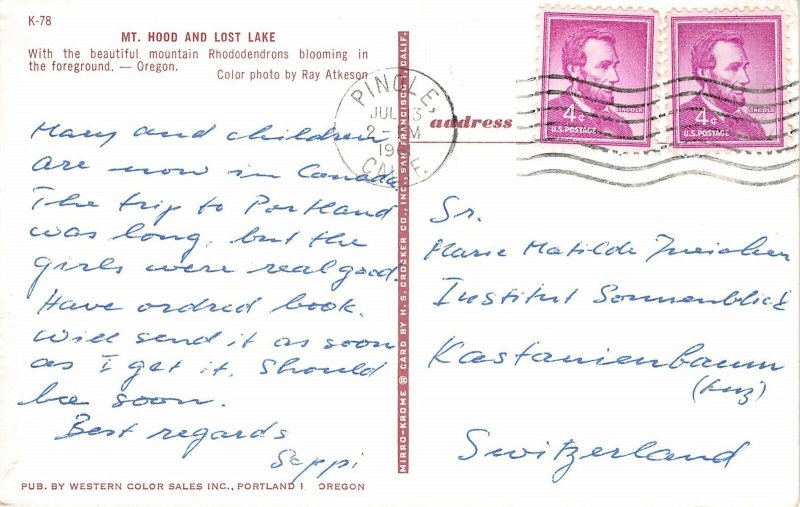 K-78
MT. HOOD AND LOST LAKE
With the beautiful mountain Rhododendrons blooming in
the foreground. — Oregon.
Color photo by Ray Atkeson
Mary and children
are now in Canada.
The trip to Portland
was long, but the
girls were real good.
Have ordred book.
Will send it as soon
as I get it. Should
be soon.
Best regards
Seppi
PUB. BY WESTERN COLOR SALES INC., PORTLAND 1 OREGON
MIRRO-KROME ® CARD BY H. S. CROCKER CO., INC., SAN FRANCISCO 1, CALIF.
PINOLE,
JUL 3
2- M
19
CALIF.
address
4¢
LINCOLN
U.S. POSTAGE
4¢
LINCOLN
U.S. POSTAGE
Sr.
Marie Matilde
Institut Sonnenblick
Kastanienbaum
(Luz)
Switzerland